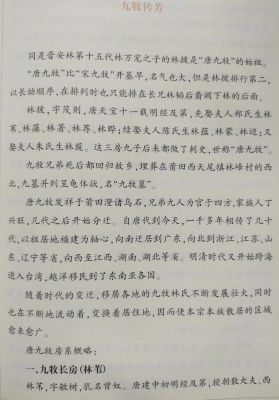 九牧传芳
同是晋安林第十五代林万宠之子的林披是“唐九牧”的始祖。
“唐九牧”比“宋九牧”开基早，名气也大，但是林披排行第二，
以长幼顺序，在排列时也只能排在长兄林韬后裔阙下林的后面。
林披，字茂则，唐天宝十一载明经及第，先娶夫人郑氏生林
苇、林藻、林著、林荐、林晔；续娶夫人陈氏生林蕴、林蒙、林迈；又
娶夫人朱氏生林蔇。这三房九子后来都做了刺史，世称“唐九牧”。
九牧兄弟死后都回归故乡，埋葬在莆田西天尾镇林峰村的西
北，九墓并列呈龟体状，名“九牧墓”。
唐九牧发祥于莆田澄渚乌石，兄弟九人为官于四方，家族人丁
兴旺，几代之后开始分迁。自唐代到今天，一千多年相传了几十
代，以祖居地福建为轴心，向南迁居到广东，向北到浙江、江苏、山
东、辽宁等省，向西至江西、湖南、湖北等省。明清时代又开始跨海
进入台湾，越洋移民到了东南亚各国。
随着时代的变迁，移居各地的九牧林氏不断发展壮大，同时
也在不断地流动着，变换着居住地，因而使本宗本族散居的区域
愈来愈广。
唐九牧房系概略：
一、九牧长房（林苇）
林苇，字敏树，乳名曾奴。唐建中初明经及第，授朝散大夫、西